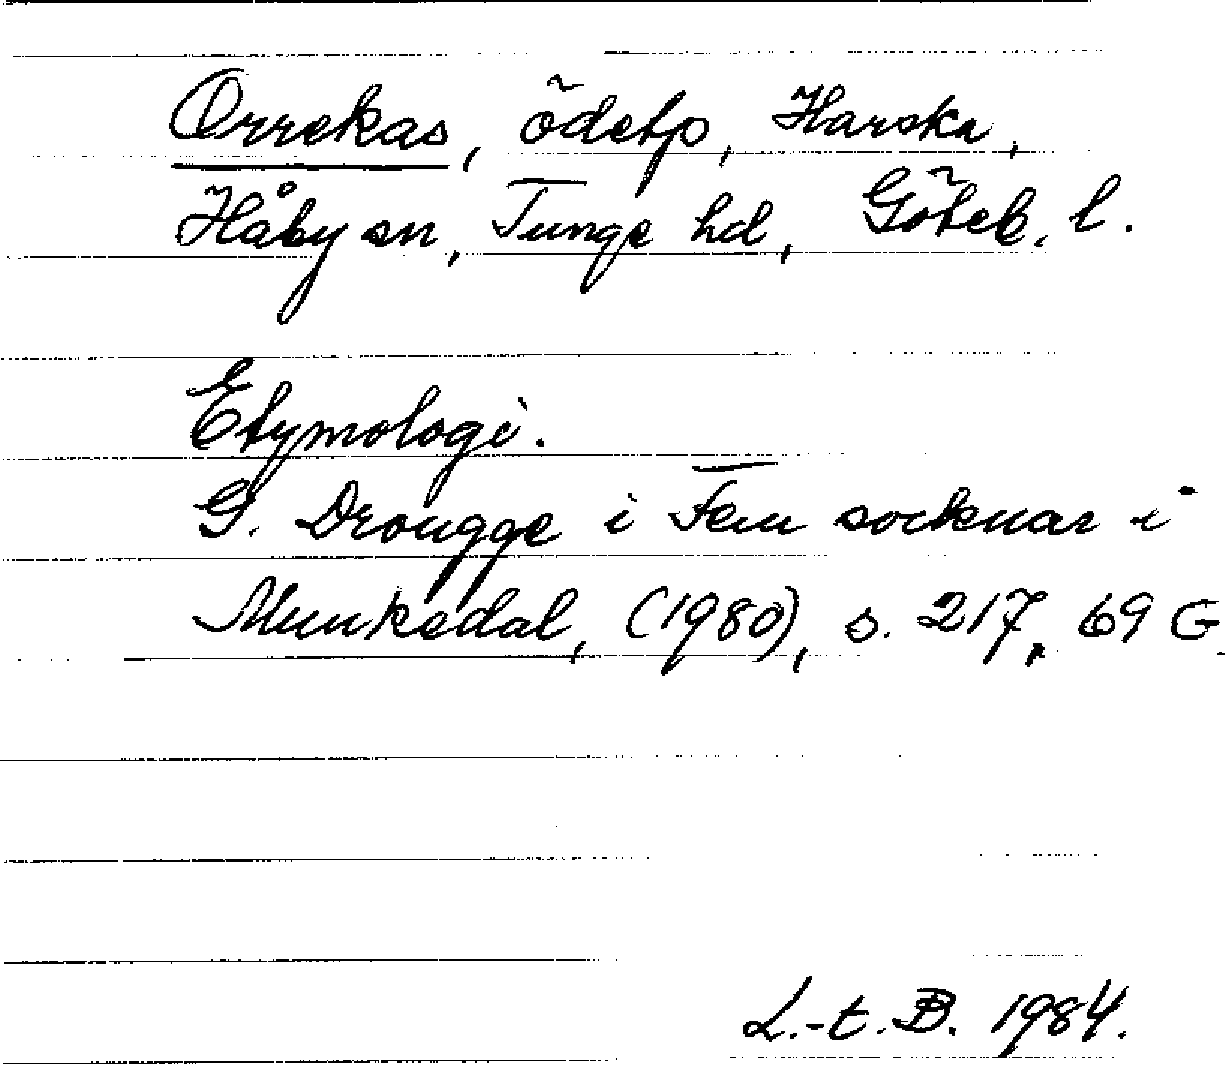 Orrekas, ödetp, Harska,
Håby sn, Tunge hd, Göteb. l.
Etymologi.
G. Drougge i Fem socknar i
Munkedal, (1980), s. 217, 69 G
L.-t. B. 1984.